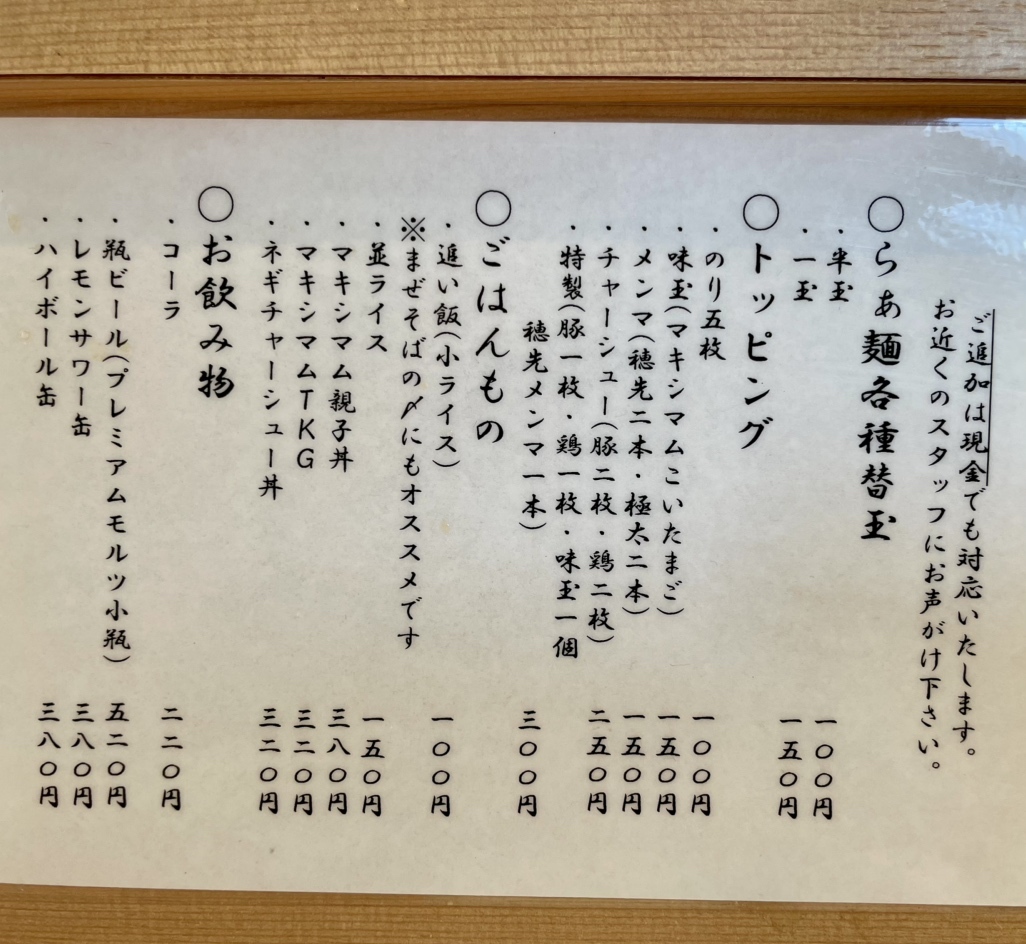 ご追加は現金でも対応いたします。
お近くのスタッフにお声がけ下さい。
○らぁ麺各種替玉
・半玉 一〇〇円
・一玉 一五〇円
○トッピング
・のり五枚 一〇〇円
・味玉(マキシマムこいたまご) 一五〇円
・メンマ(穂先二本・極太二本) 一五〇円
・チャーシュー(豚二枚・鶏二枚) 二五〇円
・特製(豚一枚・鶏一枚・味玉一個
穂先メンマ一本) 三〇〇円
○ごはんもの
・追い飯(小ライス) 一〇〇円
※まぜそばの〆にもオススメです
・並ライス 一五〇円
・マキシマム親子丼 三八〇円
・マキシマムTKG 三二〇円
・ネギチャーシュー丼 三二〇円
○お飲み物
・コーラ 二二〇円
・瓶ビール(プレミアムモルツ小瓶) 五二〇円
・レモンサワー缶 三八〇円
・ハイボール缶 三八〇円